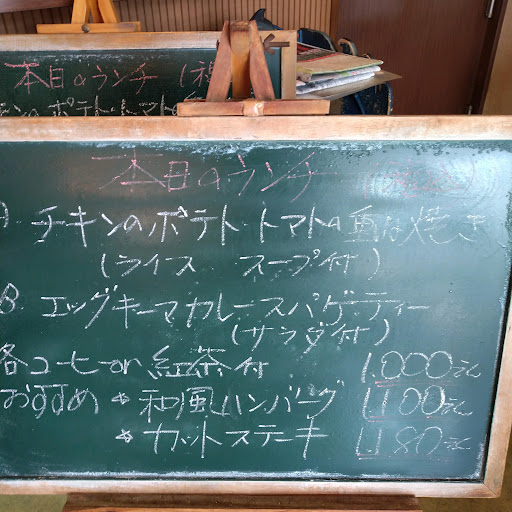 本日のランチ (税
チキンのポテト・トマト
本日のランチ (税込)
チキンのポテト・トマトの重ね焼き
(ライス スープ付)
B エッグキーマカレースパゲティー
(サラダ付)
各コーヒー or 紅茶付 1,000えん
おすすめ * 和風ハンバーグ 1,100えん
* カットステーキ 1,180えん